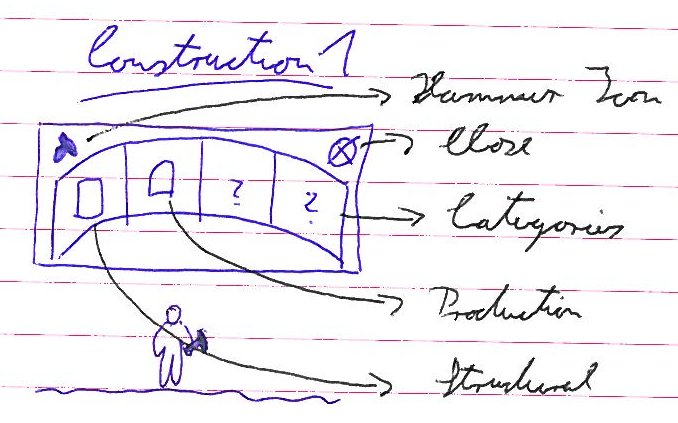 Construction 1
Hammer Icon
Close
? ?
Categories
Production
Structural